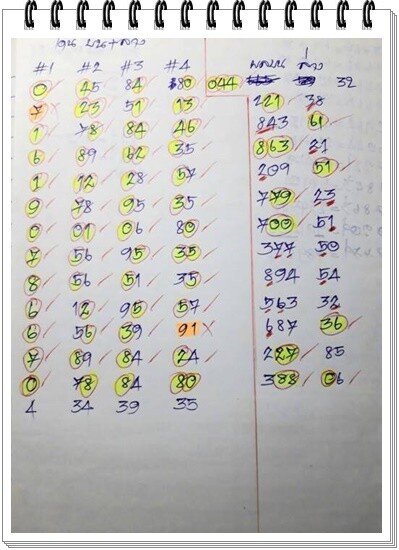 เด่น บน+ล่าง
#1 #2 #3 #4 ผลบน ล่าง
0 45 84 80 044 32
7 23 51 13 221 38
1 78 84 46 843 61
6 89 62 35 863 21
1 12 28 57 209 51
9 78 95 35 779 23
0 01 06 80 700 51
7 56 95 35 377 50
8 56 51 35 894 54
6 12 95 57 563 32
6 56 39 91 687 36
7 89 84 24 227 85
0 78 84 80 388 06
4 34 39 35